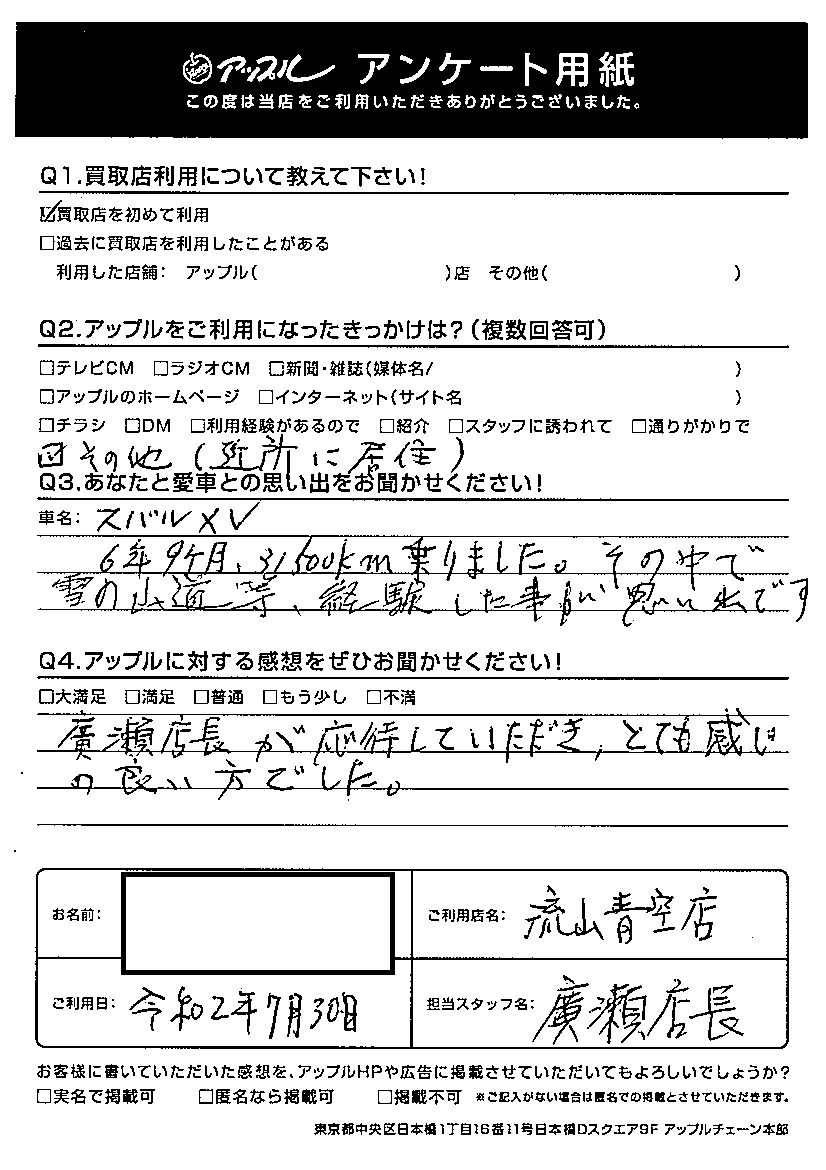 アップル アンケート用紙
この度は当店をご利用いただきありがとうございました。
Q1.買取店利用について教えて下さい!
☑買取店を初めて利用
□過去に買取店を利用したことがある
利用した店舗: アップル( )店 その他( )
Q2.アップルをご利用になったきっかけは?(複数回答可)
□テレビCM □ラジオCM □新聞・雑誌(媒体名/ )
□アップルのホームページ □インターネット(サイト名 )
□チラシ □DM □利用経験があるので □紹介 □スタッフに誘われて □通りがかりで
☑その他(近所に居住)
Q3.あなたと愛車との思い出をお聞かせください!
車名: スバルXV
6年9ケ月、31500km乗りました。その中で
雪の山道等、経験した事が思い出です
Q4.アップルに対する感想をぜひお聞かせください!
□大満足 □満足 □普通 □もう少し □不満
廣瀬店長が応待していただき、とても感じ
の良い方でした。
お名前:
ご利用店名: 流山青空店
ご利用日: 令和2年7月30日
担当スタッフ名: 廣瀬店長
お客様に書いていただいた感想を、アップルHPや広告に掲載させていただいてもよろしいでしょうか?
□実名で掲載可 □匿名なら掲載可 □掲載不可 ※ご記入がない場合は匿名での掲載とさせていただきます。
東京都中央区日本橋1丁目16番11号日本橋Dスクエア9F アップルチェーン本部